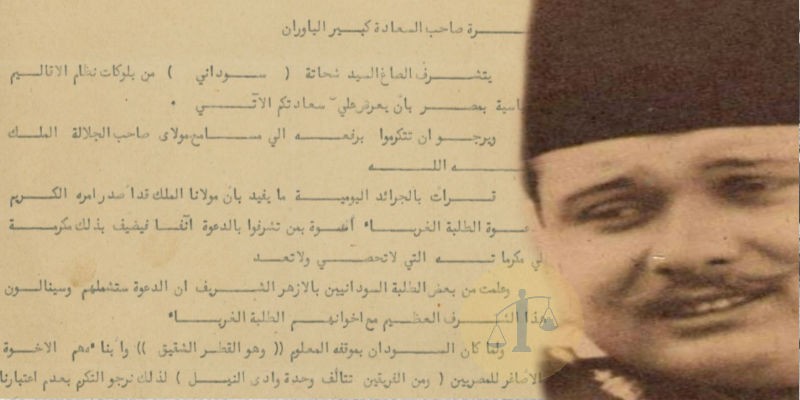 ـــرة صاحب السعادة كبـــير الياوران
يتشـــرف الصاغ السيد شحاتة ( ســـوداني ) من بلوكات نظام الاقاليـــم
ـاسية بمصـــر بأن يعرض على سعادتكم الآتـــي .
ويرجـــو ان تتكرموا برفعـــه الي مســـامع مولاى صاحب الجلالة الملـــك
ـــه اللـــه
قـــرأت بالجرائد اليوميـــة ما يفيد بأن مولانا الملك قد أصدر امره الكـــريم
ـعوة الطلبة الغربـــاء أســـوة بمن تشرفوا بالدعوة آنفـــا فيضيف بذلك مكرمـــة
لي مكرماتـــه التي لا تحصـــي ولا تعـــد
وعلمت من بعض الطلبة السودانيين بالازهر الشـــريف ان الدعوة ستشملهم وسينالـــون
هذا الشـــرف العظـــيم مع اخوانهـــم الطلبة الغربـــاء
ولما كان الســـودان بموقفه المعلوم (( وهو القطـــر الشقيق )) وأبناءهم الاخـــوة
الأصاغر للمصريين ( ومن الفريقين تتألف وحدة وادى النيـــل ) لذلك نرجو التكرم بعدم اعتبارنا